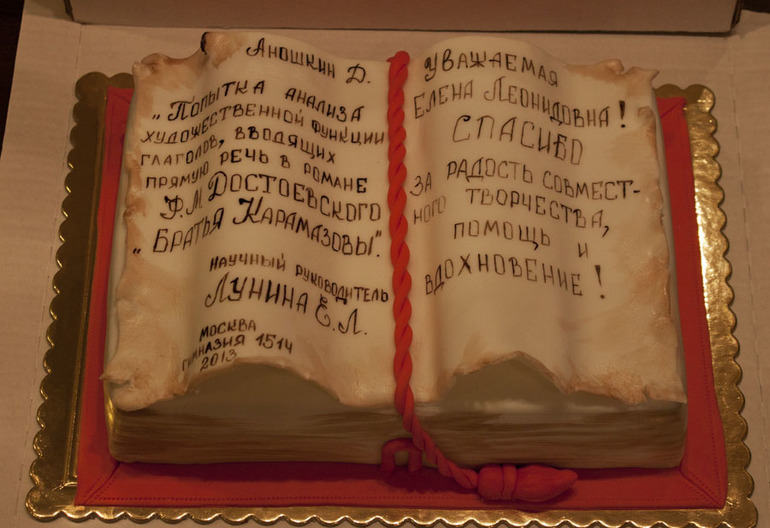 Аношкин Д.
„Попытка анализа
художественной функции
глаголов, вводящих
прямую речь в романе
Ф.М. Достоевского
„Братья Карамазовы".
научный руководитель
Лунина Е.Л.
Москва
гимназия 1514
2013
Уважаемая
Елена Леонидовна!
СПАСИБО
за радость совмест-
ного творчества,
помощь и
вдохновение!